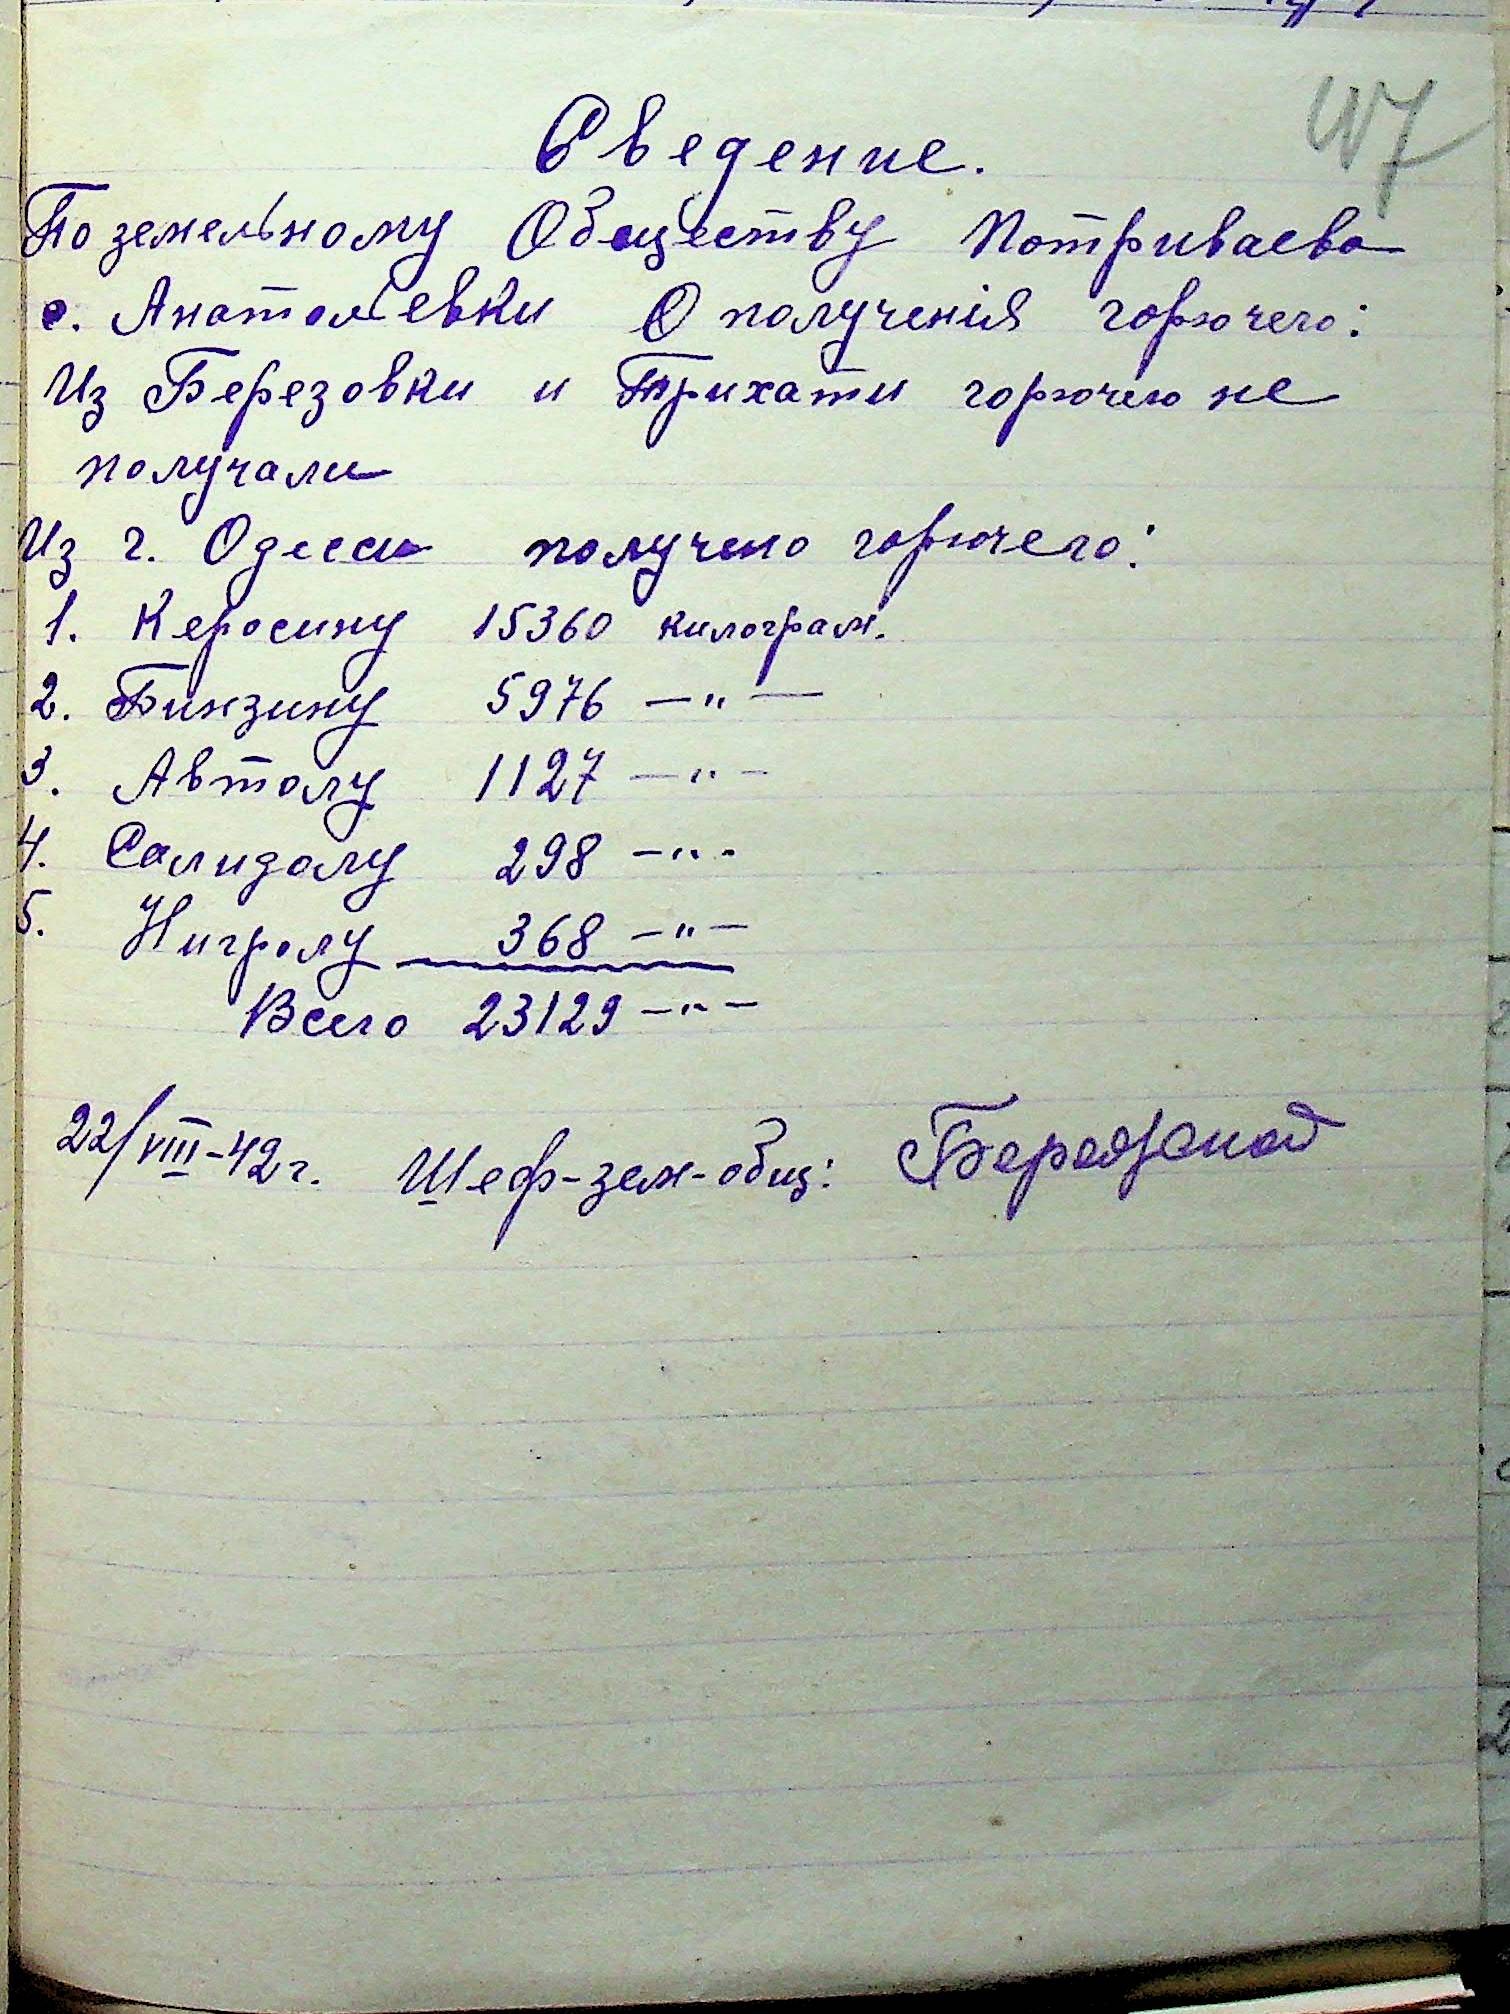 Сведение.
По земельному Обществу Потриваева
с. Анатольевки О полученія горючего:
Из Березовки и Трихати горючего не
получали
Из г. Одесси получено горючего:
1. Керосину 15360 килограм.
2. Бинзину 5976 —"—
3. Автолу 1127 —"—
4. Солидолу 298 —"—
5. Нигролу 368 —"—
Всего 23129 —"—
22/VIII-42г. Шеф-зем-общ: